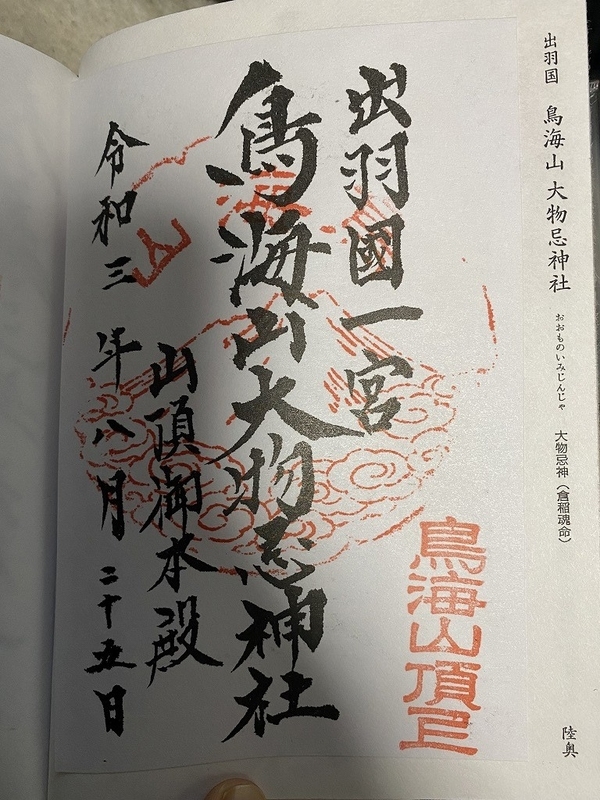 出羽国 鳥海山 大物忌神社 おおものいみじんじゃ 大物忌神(倉稲魂命)
陸奥
出羽國一宮
鳥海山大物忌神社
山頂御本殿
令和三年八月二十五日
鳥海山頂